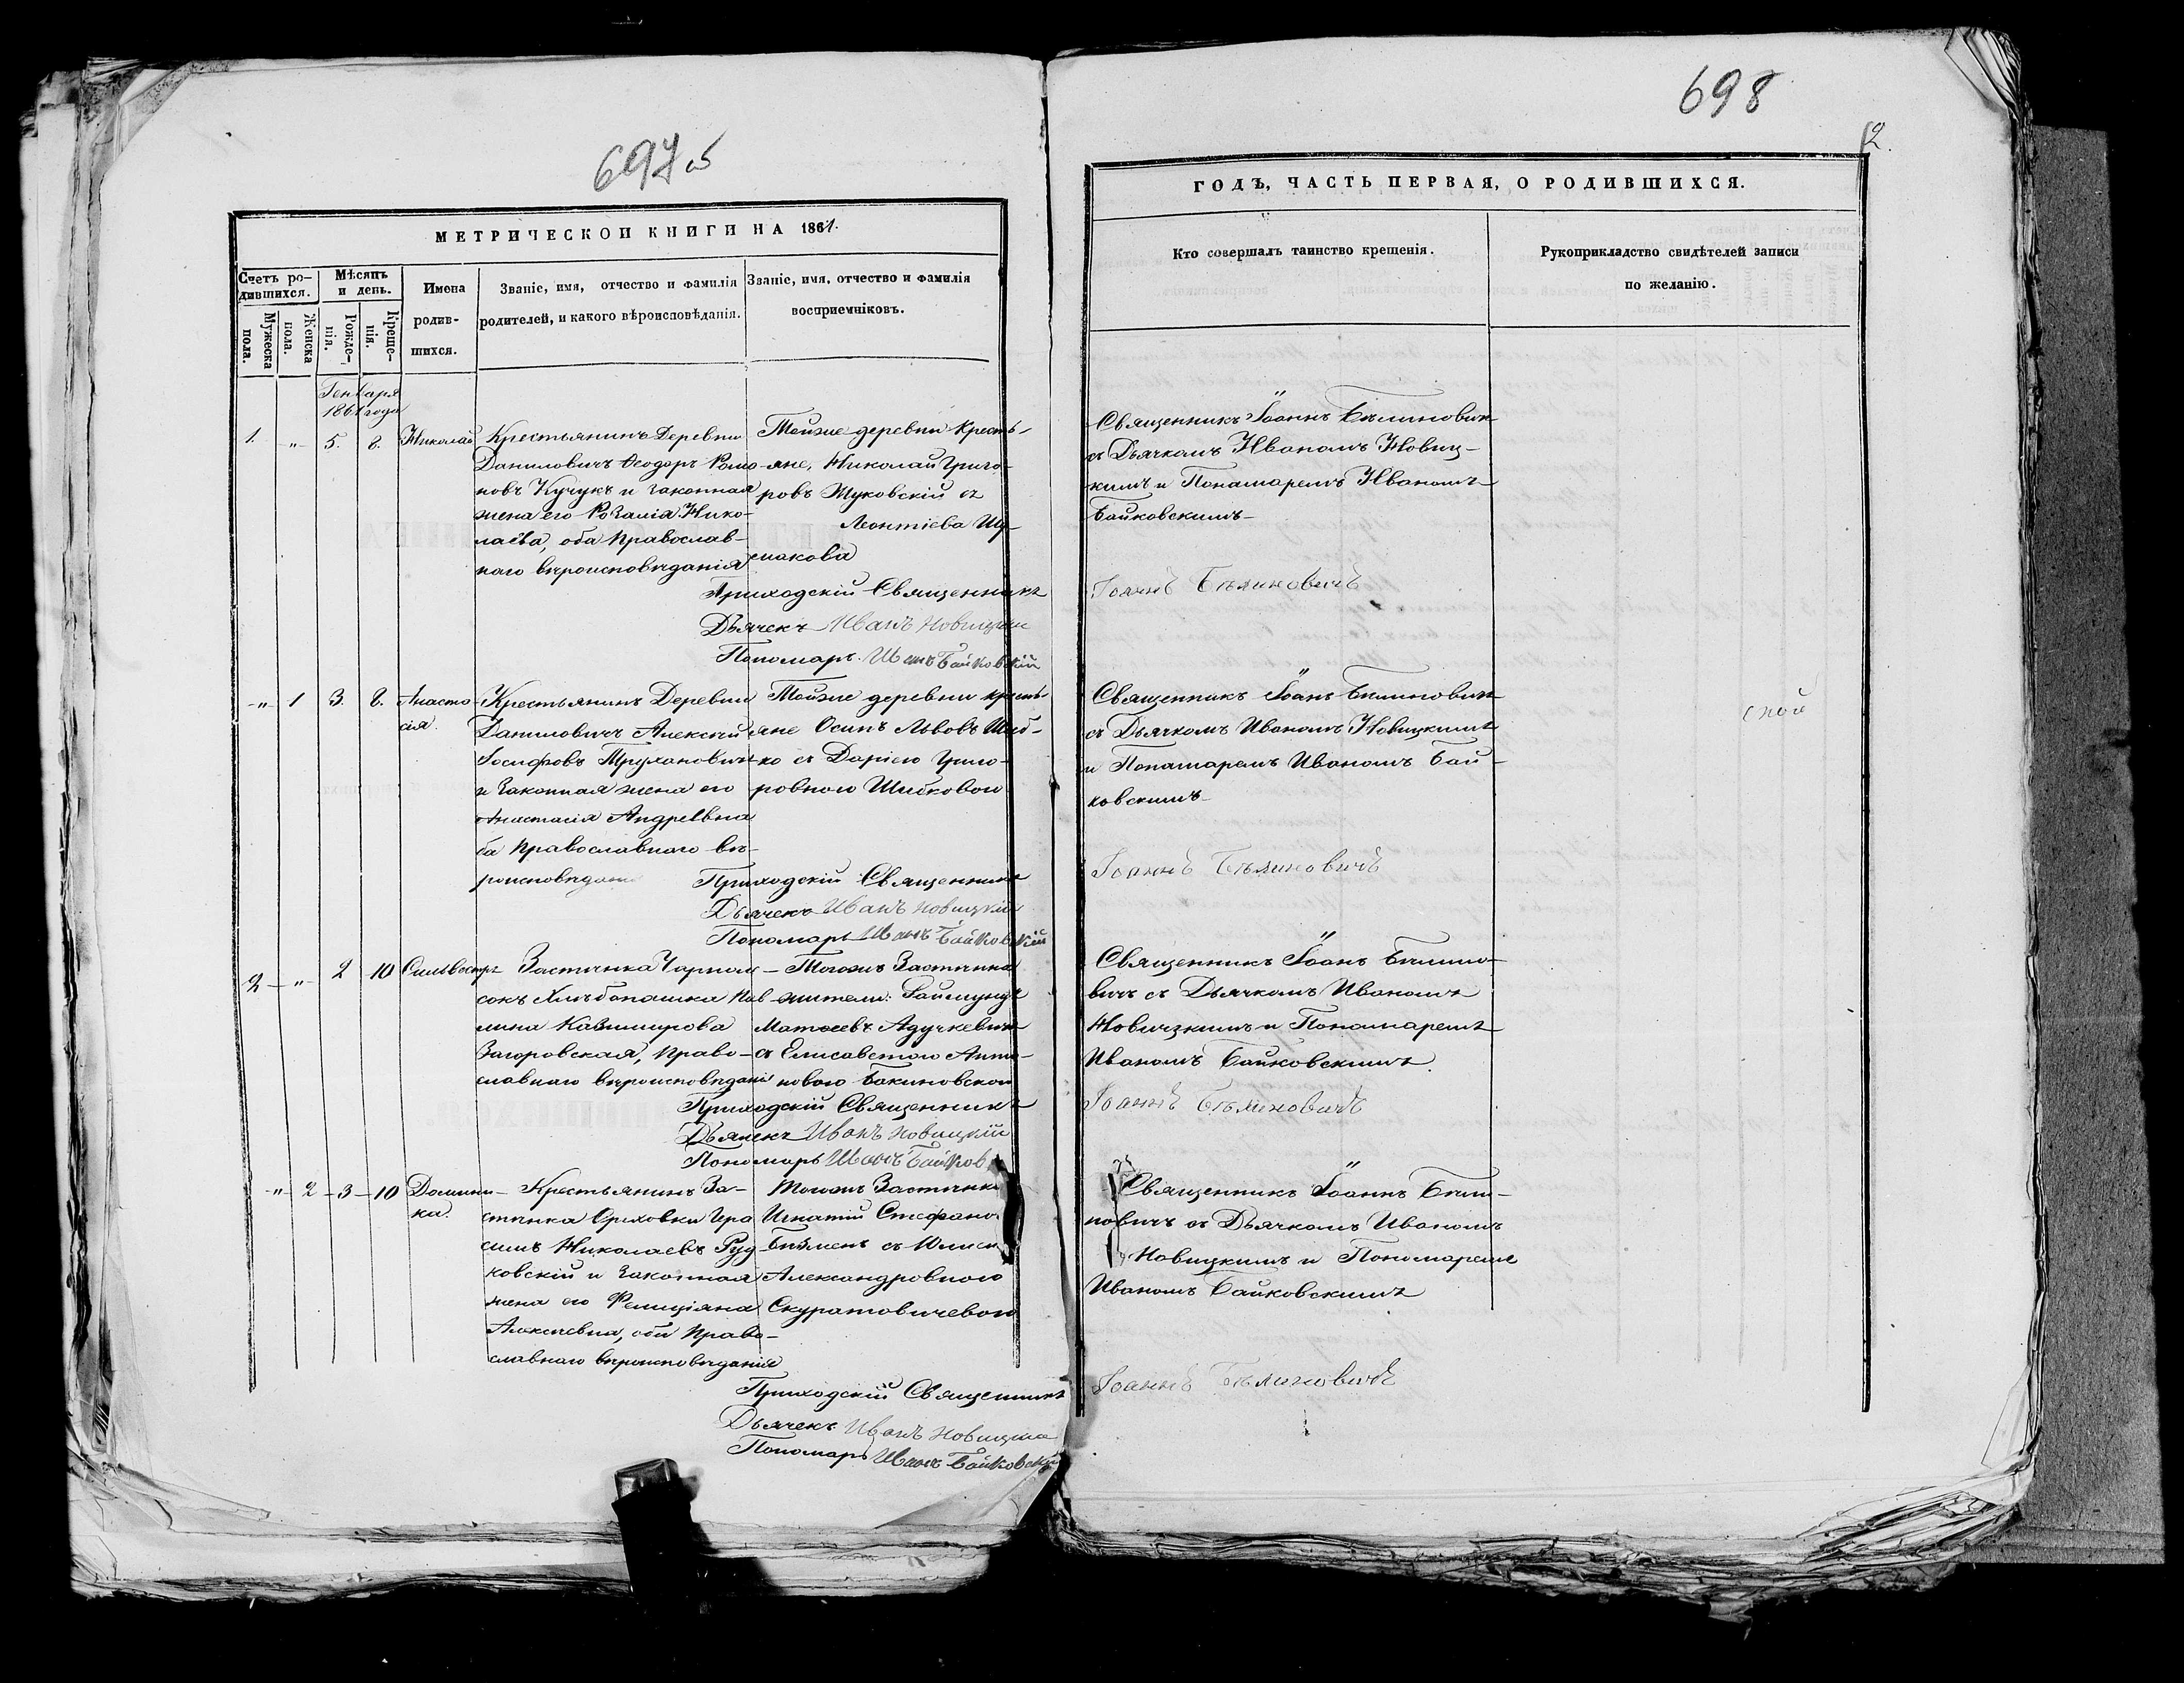 697 об
МЕТРИЧЕСКОЙ КНИГИ НА 1861.
Счетъ родившихся.
Мѣсяцъ и день.
Имена родившихся.
Званіе, имя, отчество и фамилія
родителей, и какого вѣроисповѣданія.
Званіе, имя, отчество и фамилія
воспріемниковъ.
Мужеска пола.
Женска пола.
Рожденія.
Крещенія.
Генваря
1861 года
1. " 5. 8. Николай
Крестьянинъ Деревни
Даниловичъ Ѳеодоръ Рома-
новъ Кучукъ и законная
жена его Розалія Нико-
лаева, оба Православ-
наго вѣроисповѣданія
Тойже деревни Кресть-
яне, Николай Григо-
ровъ Жуковскій съ
Леонтіева
Приходскій Священникъ
Дьячекъ Иванъ Новицкій
Пономарь Иванъ Байковскій
" 1 3. 8. Анаста-
сія.
Крестьянинъ Деревни
Даниловичъ Алексѣй
Іосифовъ Труханович
и Законная жена его
Анастасія Андреевна
ба Православнаго вѣ-
роисповѣдани
Тойже деревни кресть-
яне Осипъ Львовъ Шиб-
ко съ Даріею Григо-
ровною Шибковою
Приходскій Священникъ
Дьячекъ Иванъ Новицкій
Пономарь Иванъ Байковскій
2 " 2 10 Сильвестръ
Застѣнка Чарном-
сокъ Павлина Казимирова
Загоровская, Право-
славнаго вѣроисповѣдані
Тогожъ Застѣнка
жители: Раймундъ
Матѳеевъ Адучкевичъ
съ Елисаветою Анто-
новою Бакиновскою
Приходскій Священникъ
Дьячекъ Иванъ Новицкій
Пономарь Иванъ Байков
" 2 3 10 Домини-
ка.
Крестьянинъ За-
стѣнка Ореховки Гера
симъ Николаевъ Руд-
ковскій и Законная
жена его Фелиціяна
Алексѣевна, оба Право-
славнаго вѣроисповѣданія
Тогожъ Застѣнка
Игнатій Стефано
съ
Александровною
Скуратовичевою
Приходскій Священникъ
Дьячекъ Иванъ Новицкій
Пономарь Иванъ Байковскій
698
2.
ГОДЪ, ЧАСТЬ ПЕРВАЯ, О РОДИВШИХСЯ.
Кто совершалъ таинство крещенія.
Рукоприкладство свидѣтелей записи
по желанію.
Священникъ Іоаннъ Бѣлиновичъ
съ Дьячкомъ Иваномъ Новиц-
кимъ и Понамаремъ Иваномъ
Байковскимъ
Іоаннъ Бѣлиновичъ
Священникъ Іоанъ Бѣлиновичъ
съ Дьячкомъ Иваномъ Новицкимъ
и Понамаремъ Иваномъ Бай-
ковскимъ
Іоаннъ Бѣлиновичъ
Священникъ Іоанъ Бѣлино-
вичъ съ Дьячкомъ Иваномъ
Новицкимъ и Понамаремъ
Иваномъ Байковскимъ.
Іоаннъ Бѣлиновичъ
Священникъ Іоаннъ Бѣли-
новичъ съ Дьячкомъ Иваномъ
Новицкимъ и Пономаремъ
Иваномъ Байковскимъ
Іоаннъ Бѣлиновичъ